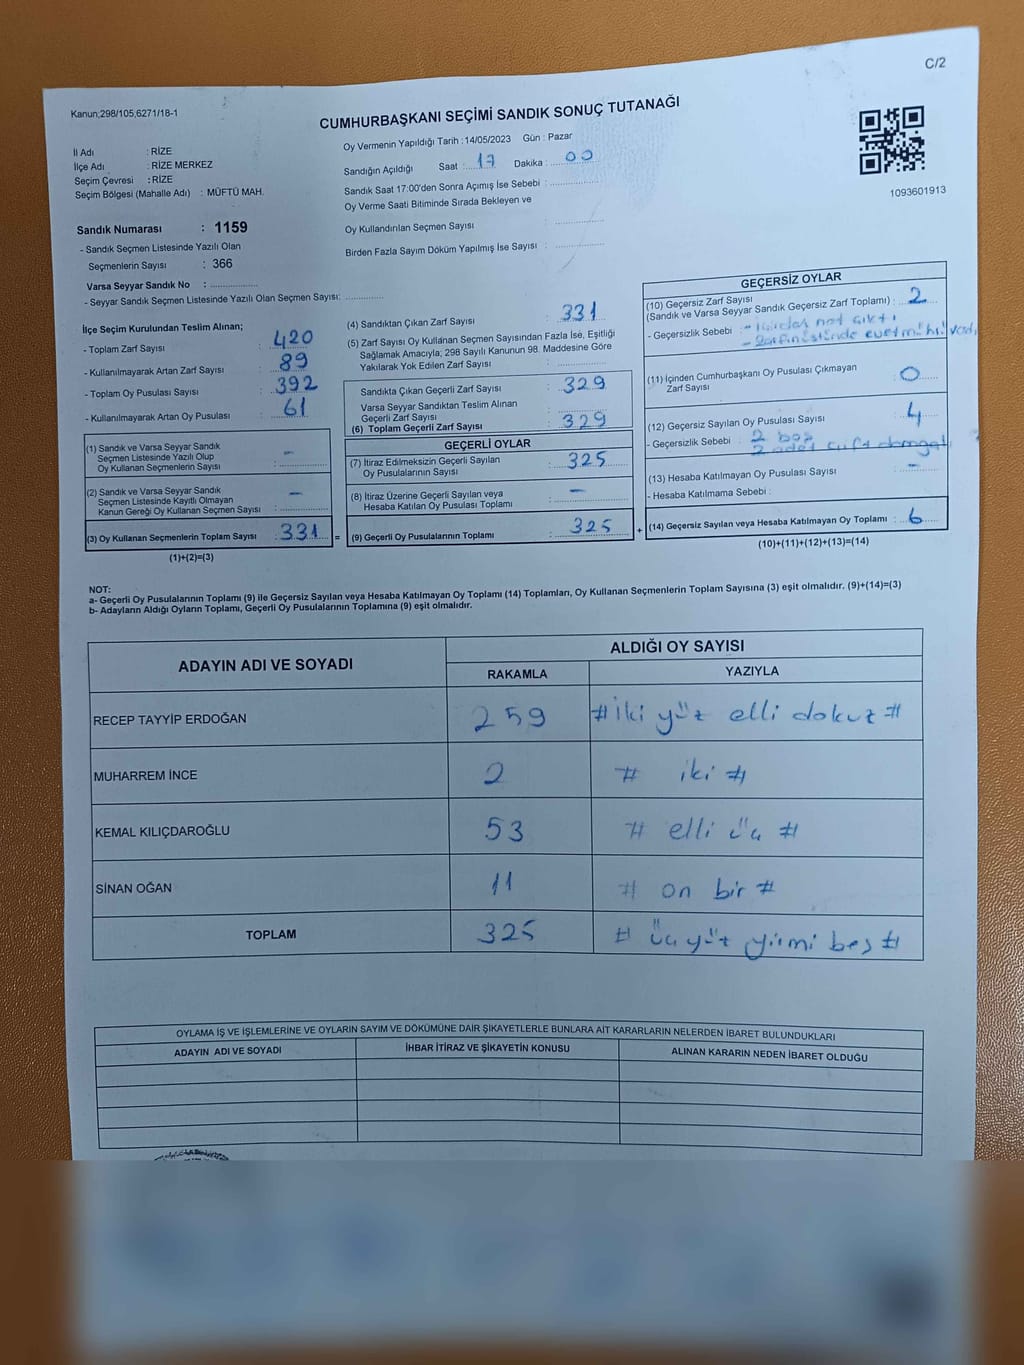 C/2
Kanun;298/105,6271/18-1
CUMHURBAŞKANI SEÇİMİ SANDIK SONUÇ TUTANAĞI
İl Adı : RİZE
İlçe Adı : RİZE MERKEZ
Seçim Çevresi : RİZE
Seçim Bölgesi (Mahalle Adı) : MÜFTÜ MAH.
Oy Vermenin Yapıldığı Tarih : 14/05/2023 Gün : Pazar
Sandığın Açıldığı Saat : 17 Dakika : 00
Sandık Saat 17:00'den Sonra Açımış İse Sebebi :
Oy Verme Saati Bitiminde Sırada Bekleyen ve
Oy Kullandırılan Seçmen Sayısı :
Birden Fazla Sayım Döküm Yapılmış İse Sayısı :
1093601913
Sandık Numarası : 1159
- Sandık Seçmen Listesinde Yazılı Olan
Seçmenlerin Sayısı : 366
Varsa Seyyar Sandık No :
- Seyyar Sandık Seçmen Listesinde Yazılı Olan Seçmen Sayısı:
İlçe Seçim Kurulundan Teslim Alınan;
- Toplam Zarf Sayısı : 420
- Kullanılmayarak Artan Zarf Sayısı : 89
- Toplam Oy Pusulası Sayısı : 392
- Kullanılmayarak Artan Oy Pusulası : 61
(1) Sandık ve Varsa Seyyar Sandık
Seçmen Listesinde Yazılı Olup
Oy Kullanan Seçmenlerin Sayısı : -
(2) Sandık ve Varsa Seyyar Sandık
Seçmen Listesinde Kayıtlı Olmayan
Kanun Gereği Oy Kullanan Seçmen Sayısı : -
(3) Oy Kullanan Seçmenlerin Toplam Sayısı : 331 =
(1)+(2)=(3)
(4) Sandıktan Çıkan Zarf Sayısı : 331
(5) Zarf Sayısı Oy Kullanan Seçmen Sayısından Fazla İse, Eşitliği
Sağlamak Amacıyla; 298 Sayılı Kanunun 98. Maddesine Göre
Yakılarak Yok Edilen Zarf Sayısı :
Sandıkta Çıkan Geçerli Zarf Sayısı : 329
Varsa Seyyar Sandıktan Teslim Alınan
Geçerli Zarf Sayısı :
(6) Toplam Geçerli Zarf Sayısı : 329
GEÇERLİ OYLAR
(7) İtiraz Edilmeksizin Geçerli Sayılan
Oy Pusulalarının Sayısı : 325
(8) İtiraz Üzerine Geçerli Sayılan veya
Hesaba Katılan Oy Pusulası Toplamı : -
(9) Geçerli Oy Pusulalarının Toplamı : 325 +
GEÇERSİZ OYLAR
(10) Geçersiz Zarf Sayısı
(Sandık ve Varsa Seyyar Sandık Geçersiz Zarf Toplamı) : 2
- Geçersizlik Sebebi : - içinden not çıktı
- Zarfın üstünde evet mührü var.
(11) İçinden Cumhurbaşkanı Oy Pusulası Çıkmayan
Zarf Sayısı : 0
(12) Geçersiz Sayılan Oy Pusulası Sayısı : 4
- Geçersizlik Sebebi : 2 boş
2 adet çift damgalı
(13) Hesaba Katılmayan Oy Pusulası Sayısı : -
- Hesaba Katılmama Sebebi :
(14) Geçersiz Sayılan veya Hesaba Katılmayan Oy Toplamı : 6
(10)+(11)+(12)+(13)=(14)
NOT:
a- Geçerli Oy Pusulalarının Toplamı (9) ile Geçersiz Sayılan veya Hesaba Katılmayan Oy Toplamı (14) Toplamları, Oy Kullanan Seçmenlerin Toplam Sayısına (3) eşit olmalıdır. (9)+(14)=(3)
b- Adayların Aldığı Oyların Toplamı, Geçerli Oy Pusulalarının Toplamına (9) eşit olmalıdır.
ADAYIN ADI VE SOYADI ALDIĞI OY SAYISI
RAKAMLA YAZIYLA
RECEP TAYYİP ERDOĞAN 259 # iki yüz elli dokuz #
MUHARREM İNCE 2 # iki #
KEMAL KILIÇDAROĞLU 53 # elli üç #
SİNAN OĞAN 11 # on bir #
TOPLAM 325 # üçyüz yirmi beş #
OYLAMA İŞ VE İŞLEMLERİNE VE OYLARIN SAYIM VE DÖKÜMÜNE DAİR ŞİKAYETLERLE BUNLARA AİT KARARLARIN NELERDEN İBARET BULUNDUKLARI
ADAYIN ADI VE SOYADI İHBAR İTİRAZ VE ŞİKAYETİN KONUSU ALINAN KARARIN NEDEN İBARET OLDUĞU